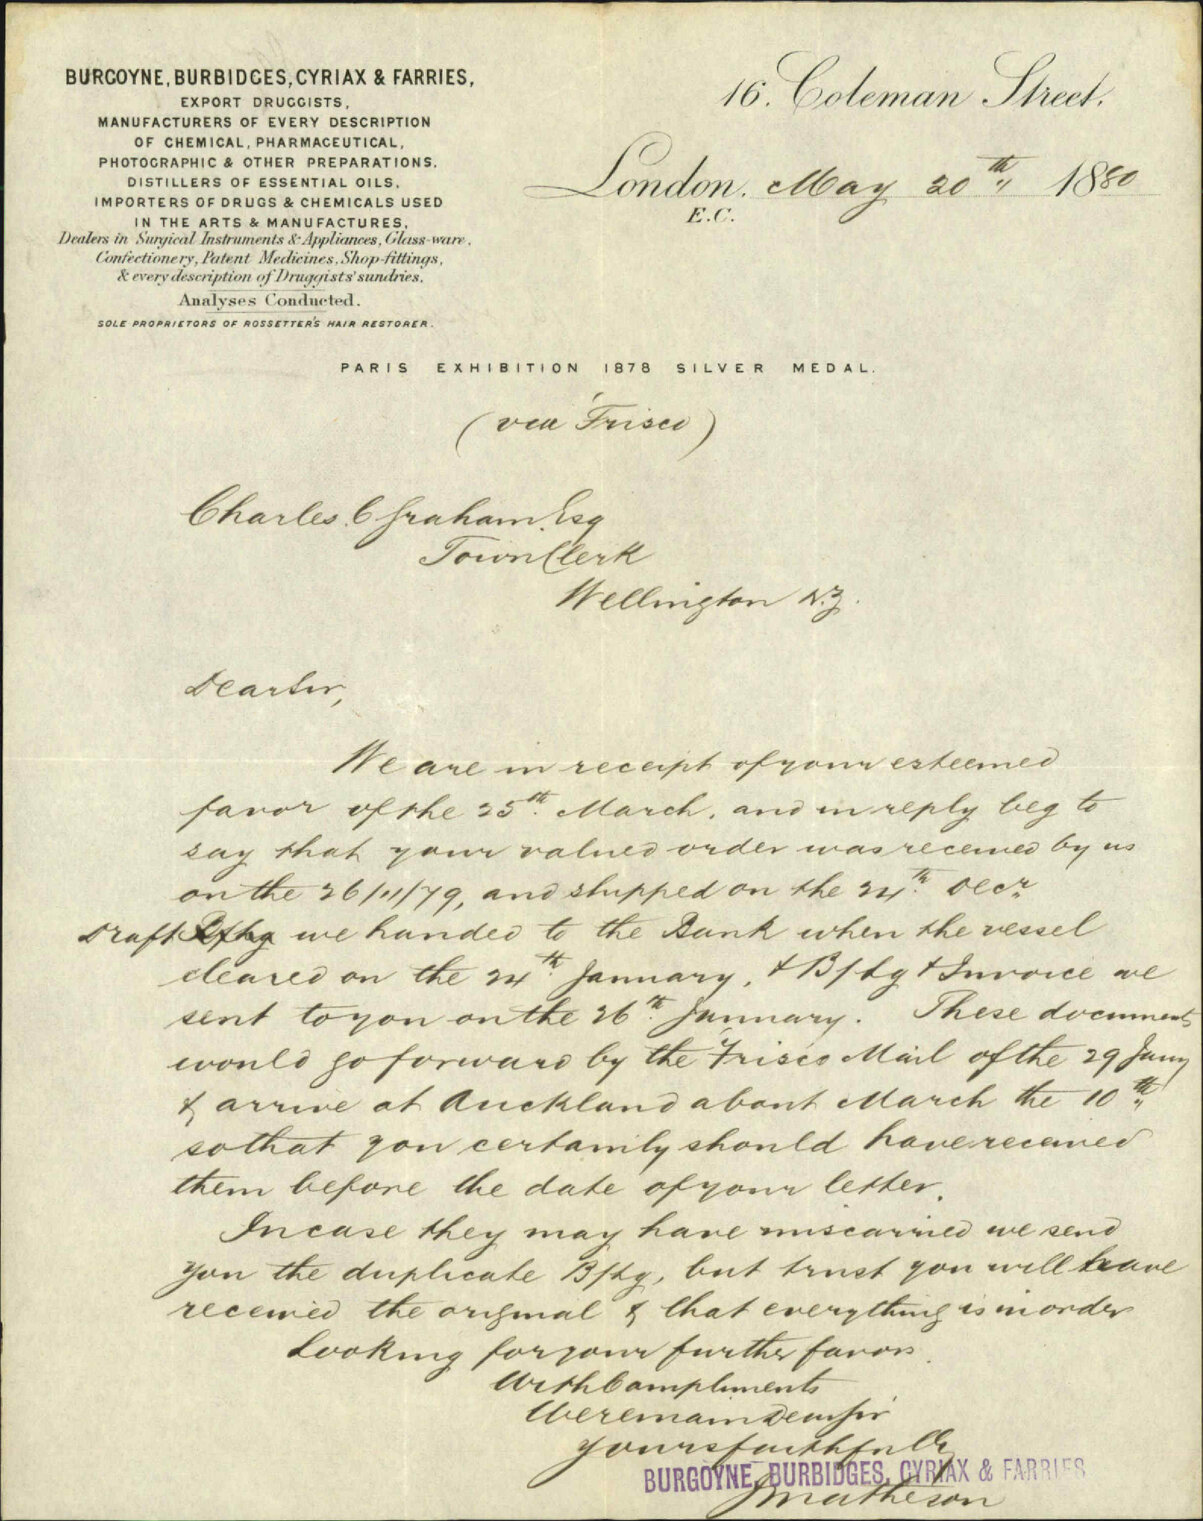 BURGOYNE, BURBIDGES, CYRIAX & FARRIES,
EXPORT DRUGGISTS,
MANUFACTURERS OF EVERY DESCRIPTION
OF CHEMICAL, PHARMACEUTICAL,
PHOTOGRAPHIC & OTHER PREPARATIONS.
DISTILLERS OF ESSENTIAL OILS,
IMPORTERS OF DRUGS & CHEMICALS USED
IN THE ARTS & MANUFACTURES,
Dealers in Surgical Instruments & Appliances, Glass-ware,
Confectionery, Patent Medicines, Shop-fittings,
& every description of Druggists' sundries.
Analyses Conducted.
SOLE PROPRIETORS OF ROSSETTER'S HAIR RESTORER.
16. Coleman Street.
London. May 20th 1880
E.C.
PARIS EXHIBITION 1878 SILVER MEDAL.
(via 'Frisco)
Charles C Graham Esq
Town Clerk
Wellington N.Z.
Dear Sir,
We are in receipt of your esteemed
favor of the 25th. March, and in reply beg to
say that your valued order was received by us
on the 26/11/79, and shipped on the 24th. Decr
Draft we handed to the Bank when the vessel
cleared on the 24th January, & B/Lg & Invoice we
sent to you on the 26th. January. These documents
would go forward by the 'Frisco Mail of the 29 Jany
& arrive at Auckland about March the 10th
so that you certainly should have received
them before the date of your letter.
In case they may have miscarried we send
you the duplicate B/Lg, but trust you will have
received the original & that everything is in order
Looking for your further favors.
With Compliments
We remain Dear Sir
Yours faithfully
BURGOYNE, BURBIDGES, CYRIAX & FARRIES
J Matheson